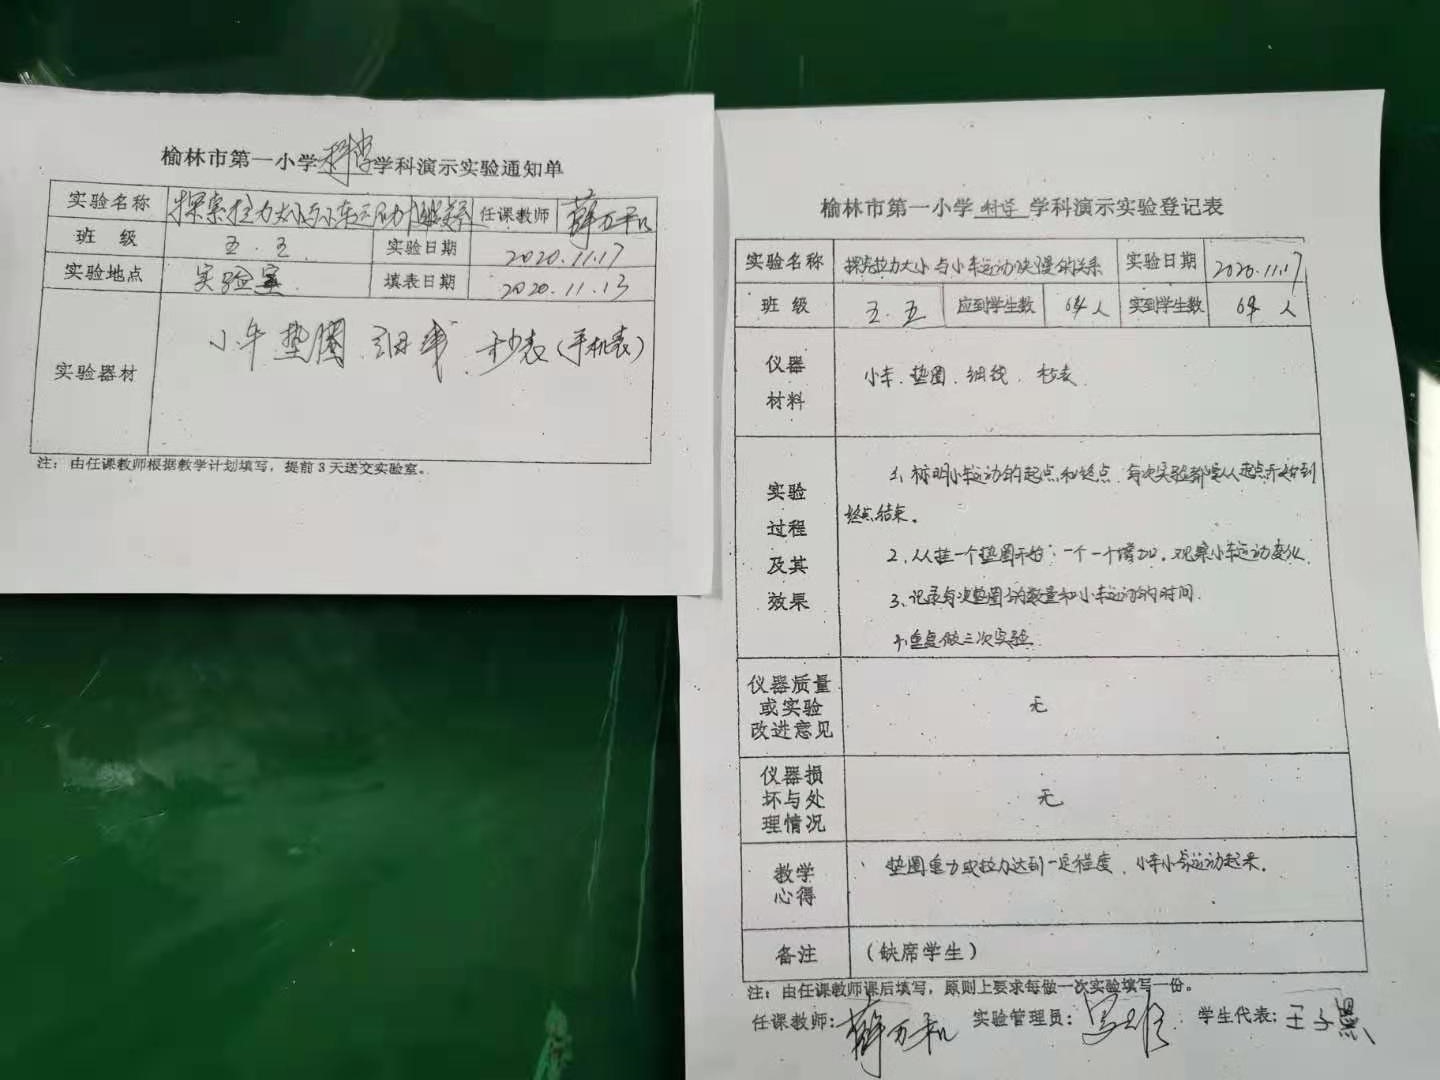 榆林市第一小学科学学科演示实验通知单
实验名称 探索拉力大小与小车运动快慢关系 任课教师 薛万和
班 级 五.五 实验日期 2020.11.17
实验地点 实验室 填表日期 2020.11.13
实验器材 小车 垫圈 细线 秒表(手机表)
注: 由任课教师根据教学计划填写, 提前3天送交实验室。
榆林市第一小学科学学科演示实验登记表
实验名称 探究拉力大小与小车运动快慢的关系 实验日期 2020.11.17
班 级 五.五 应到学生数 64人 实到学生数 64人
仪器
材料
小车、垫圈、细线、秒表
实验
过程
及其
效果
1、标明小车运动的起点和终点,每次实验都要从起点开始到
终点结束。
2、从挂一个垫圈开始,一个一个增加,观察小车运动变化
3、记录每次垫圈的数量和小车运动的时间.
4.重复做三次实验
仪器质量
或实验
改进意见
无
仪器损
坏与处
理情况
无
教学
心得
垫圈重力或拉力达到一定程度,小车运动起来。
备注 (缺席学生)
注: 由任课教师课后填写, 原则上要求每做一次实验填写一份。
任课教师: 薛万和 实验管理员: 学生代表: 王子